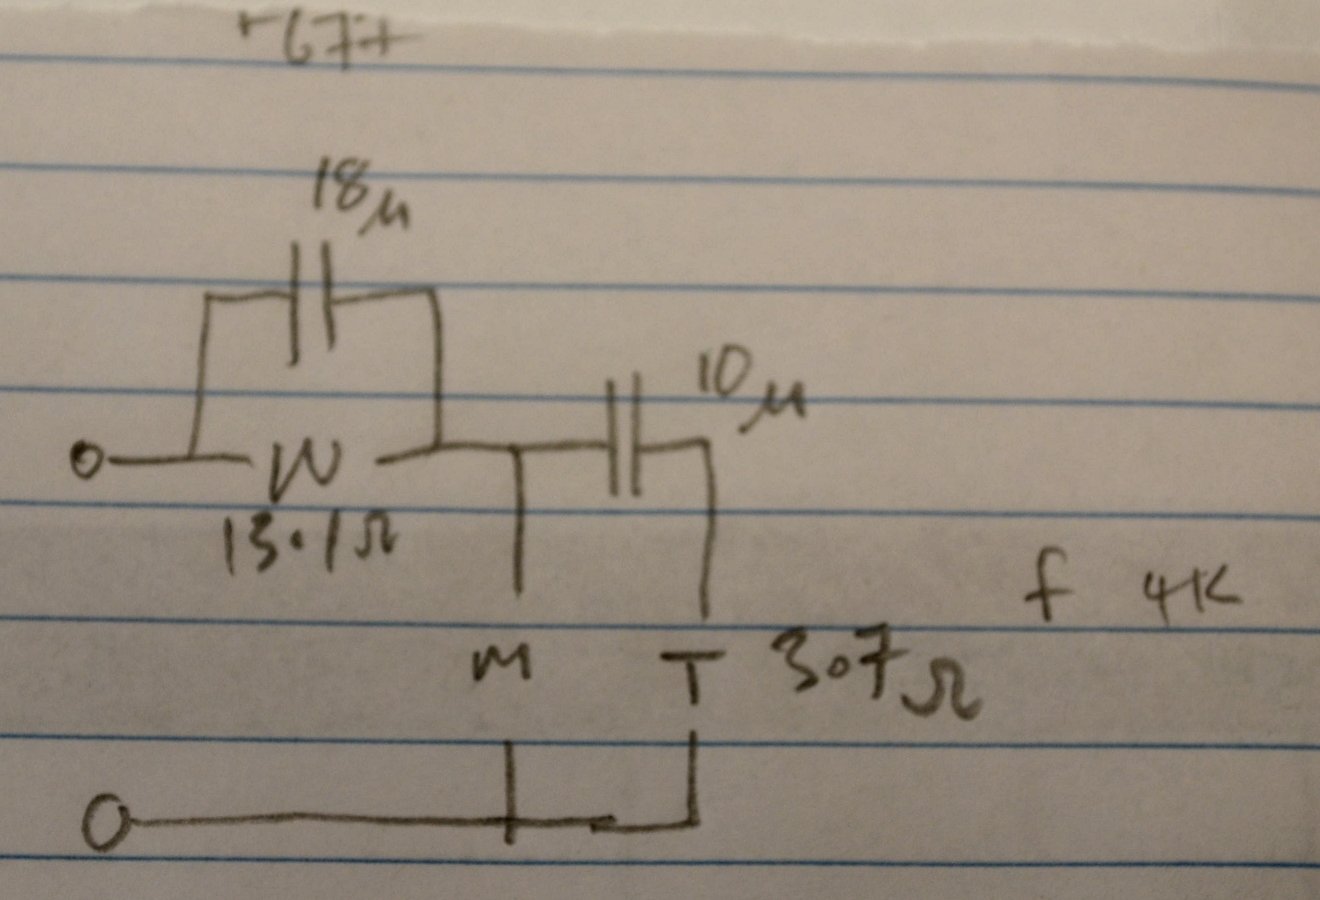 18μ
10μ
W
13.1Ω
f 4K
M T 3.7Ω